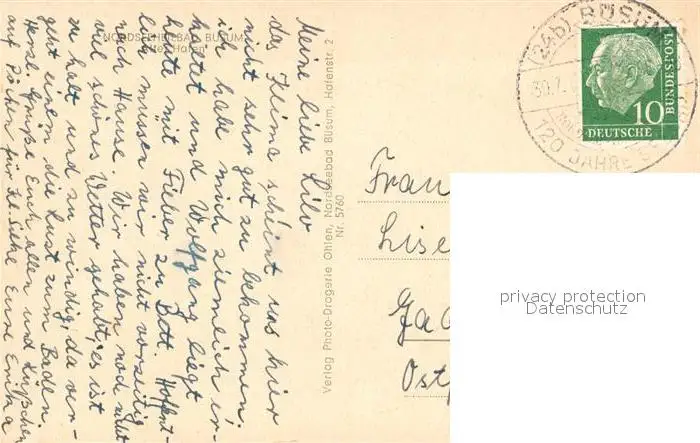 NORDSEEHEILBAD BÜSUM
Alter Hafen
Meine liebe Lilo
das Klima scheint uns hier
nicht sehr gut zu bekommen.
ich habe mich ziemlich er-
kältet und Wolfgang liegt
heute mit Fieber zu Bett. Hoffent-
lich müssen wir nicht vorzeitig
nach Hause. Wir haben noch nicht
viel schönes Wetter gehabt, es ist
zu kalt und zu windig, da ver-
geht einem die Lust zum Baden.
Herzl. Grüße Euch allen und Küßchen
für Eure Erika
Verlag Photo-Drogerie Ohlen, Nordseebad Büsum, Hafenstr. 2
Nr. 5760
(24b) BÜSUM
30.7.
120 JAHRE
10
DEUTSCHE
BUNDESPOST
Frau
Lise
Ga
Ost
privacy protection
Datenschutz